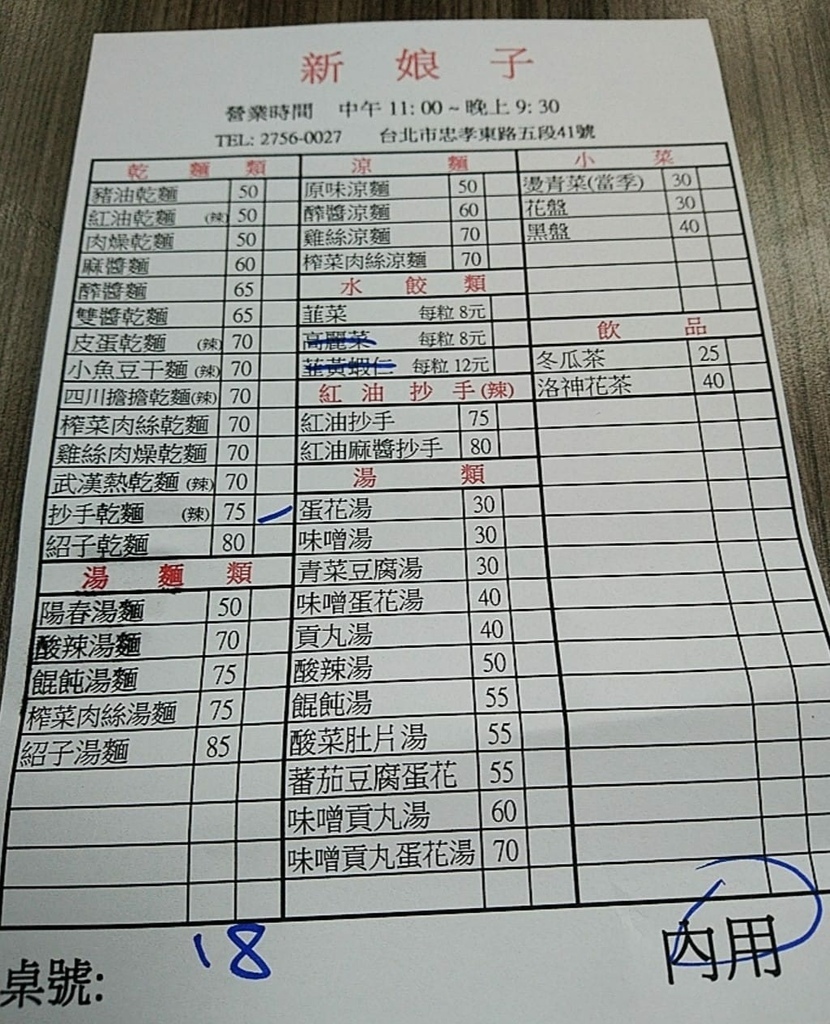 新娘子
營業時間 中午 11:00 ~ 晚上 9:30
TEL: 2756-0027 台北市忠孝東路五段41號
乾麵類
豬油乾麵 50
紅油乾麵 (辣) 50
肉燥乾麵 50
麻醬麵 60
醡醬麵 65
雙醬乾麵 65
皮蛋乾麵 (辣) 70
小魚豆干麵 (辣) 70
四川擔擔乾麵(辣) 70
榨菜肉絲乾麵 70
雞絲肉燥乾麵 70
武漢熱乾麵 (辣) 70
抄手乾麵 (辣) 75
紹子乾麵 80
湯麵類
陽春湯麵 50
酸辣湯麵 70
餛飩湯麵 75
榨菜肉絲湯麵 75
紹子湯麵 85
涼麵
原味涼麵 50
醡醬涼麵 60
雞絲涼麵 70
榨菜肉絲涼麵 70
水餃類
韮菜 每粒 8元
高麗菜 每粒 8元
韮黃蝦仁 每粒 12元
紅油抄手(辣)
紅油抄手 75
紅油麻醬抄手 80
湯類
蛋花湯 30
味噌湯 30
青菜豆腐湯 30
味噌蛋花湯 40
貢丸湯 40
酸辣湯 50
餛飩湯 55
酸菜肚片湯 55
蕃茄豆腐蛋花 55
味噌貢丸湯 60
味噌貢丸蛋花湯 70
小菜
燙青菜(當季) 30
花盤 30
黑盤 40
飲品
冬瓜茶 25
洛神花茶 40
桌號: 18
內用